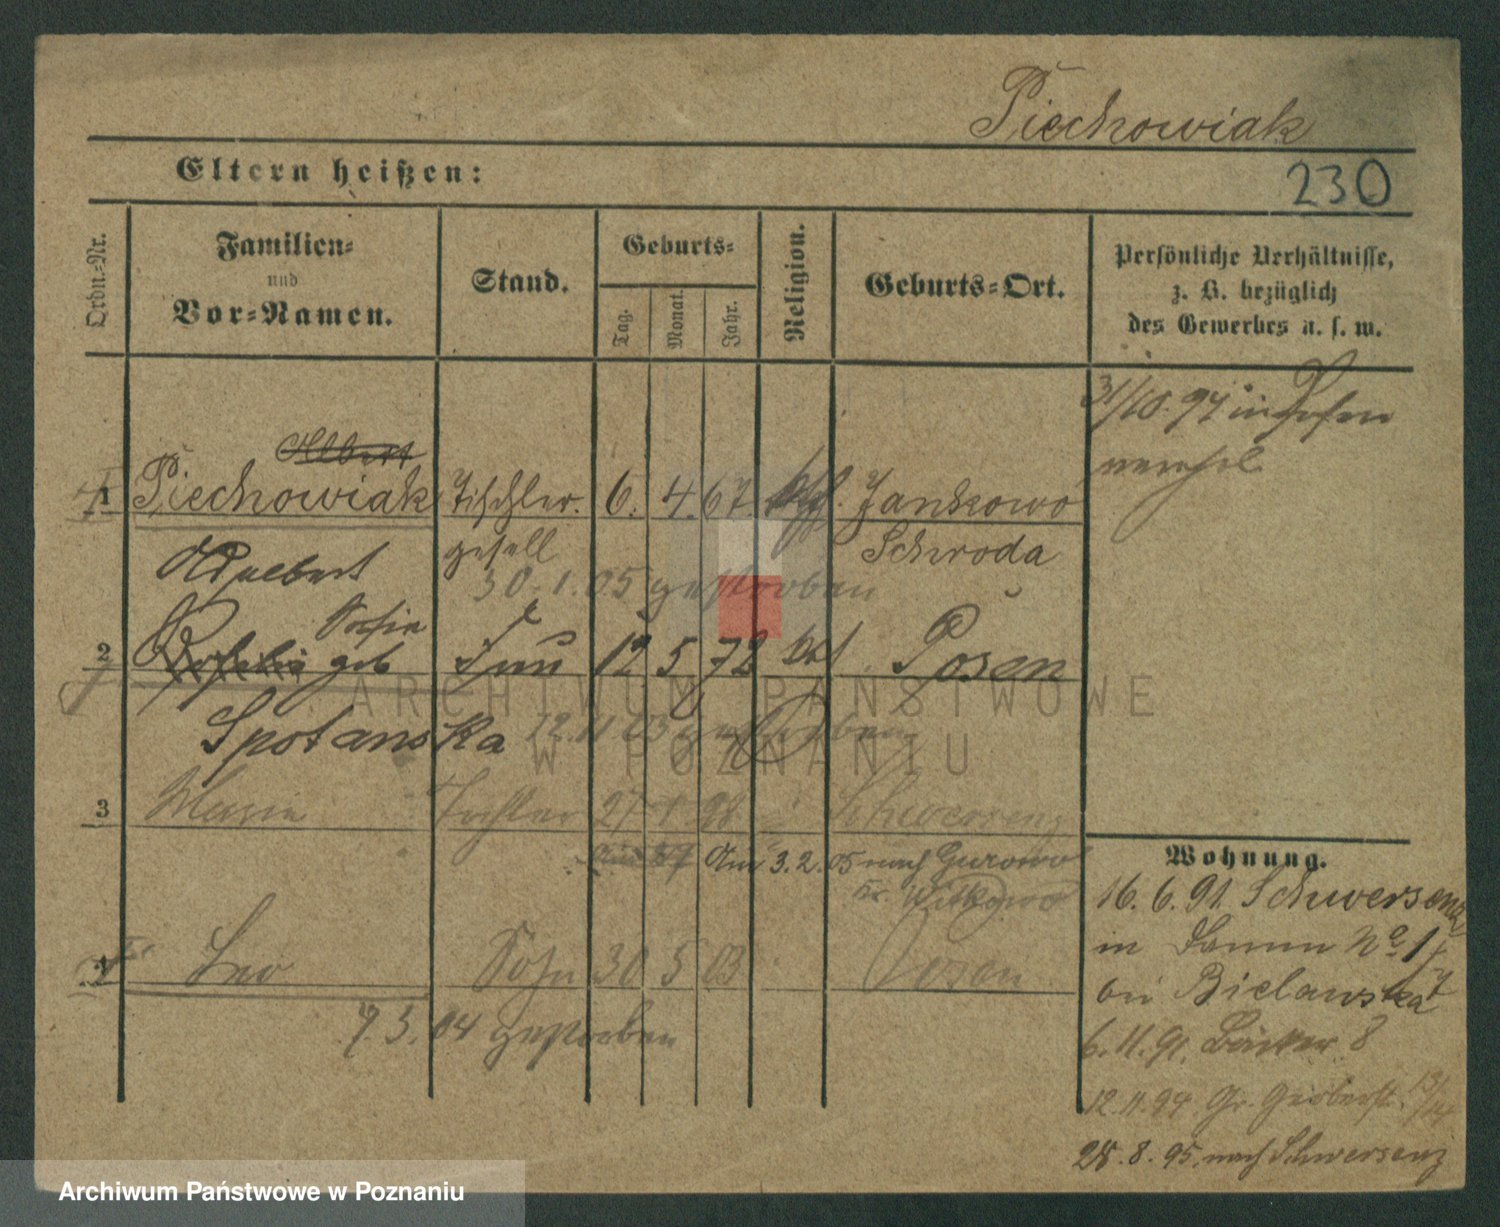 Piechowiak
Eltern heißen:
230
Ordn.-Nr.
Familien-
und
Vor-Namen.
Stand.
Geburts-
Tag.
Monat.
Jahr.
Religion.
Geburts-Ort.
Persönliche Verhältnisse,
z. B. bezüglich
des Gewerbes u. s. w.
31/10. 94 in Posen
Albert
1 Piechowiak Tischler. 6. 4. 67. Jankowo
Adalbert gesell Schroda
30. 1. 05 gestorben
Sofie
2 geb Frau 12 5 72 kat. Posen
Spotanska 12. 11 03 gestorben
3 Marie Tochter 27 1 98 Schwersenz
Am 3. 2. 05 nach Gurowo
Kr. Witkowo
4 Leo Sohn 30 5 03 Posen
7. 3. 04 gestorben
Wohnung.
16. 6. 91. Schwersenz
in Damm No 1
bei Bielawska
6. 11. 91. Bäcker 8
12. 11. 94. Gr. Gerberstr. 13/14
28. 8. 95. nach Schwersenz
ARCHIWUM PAŃSTWOWE
W POZNANIU
Archiwum Państwowe w Poznaniu